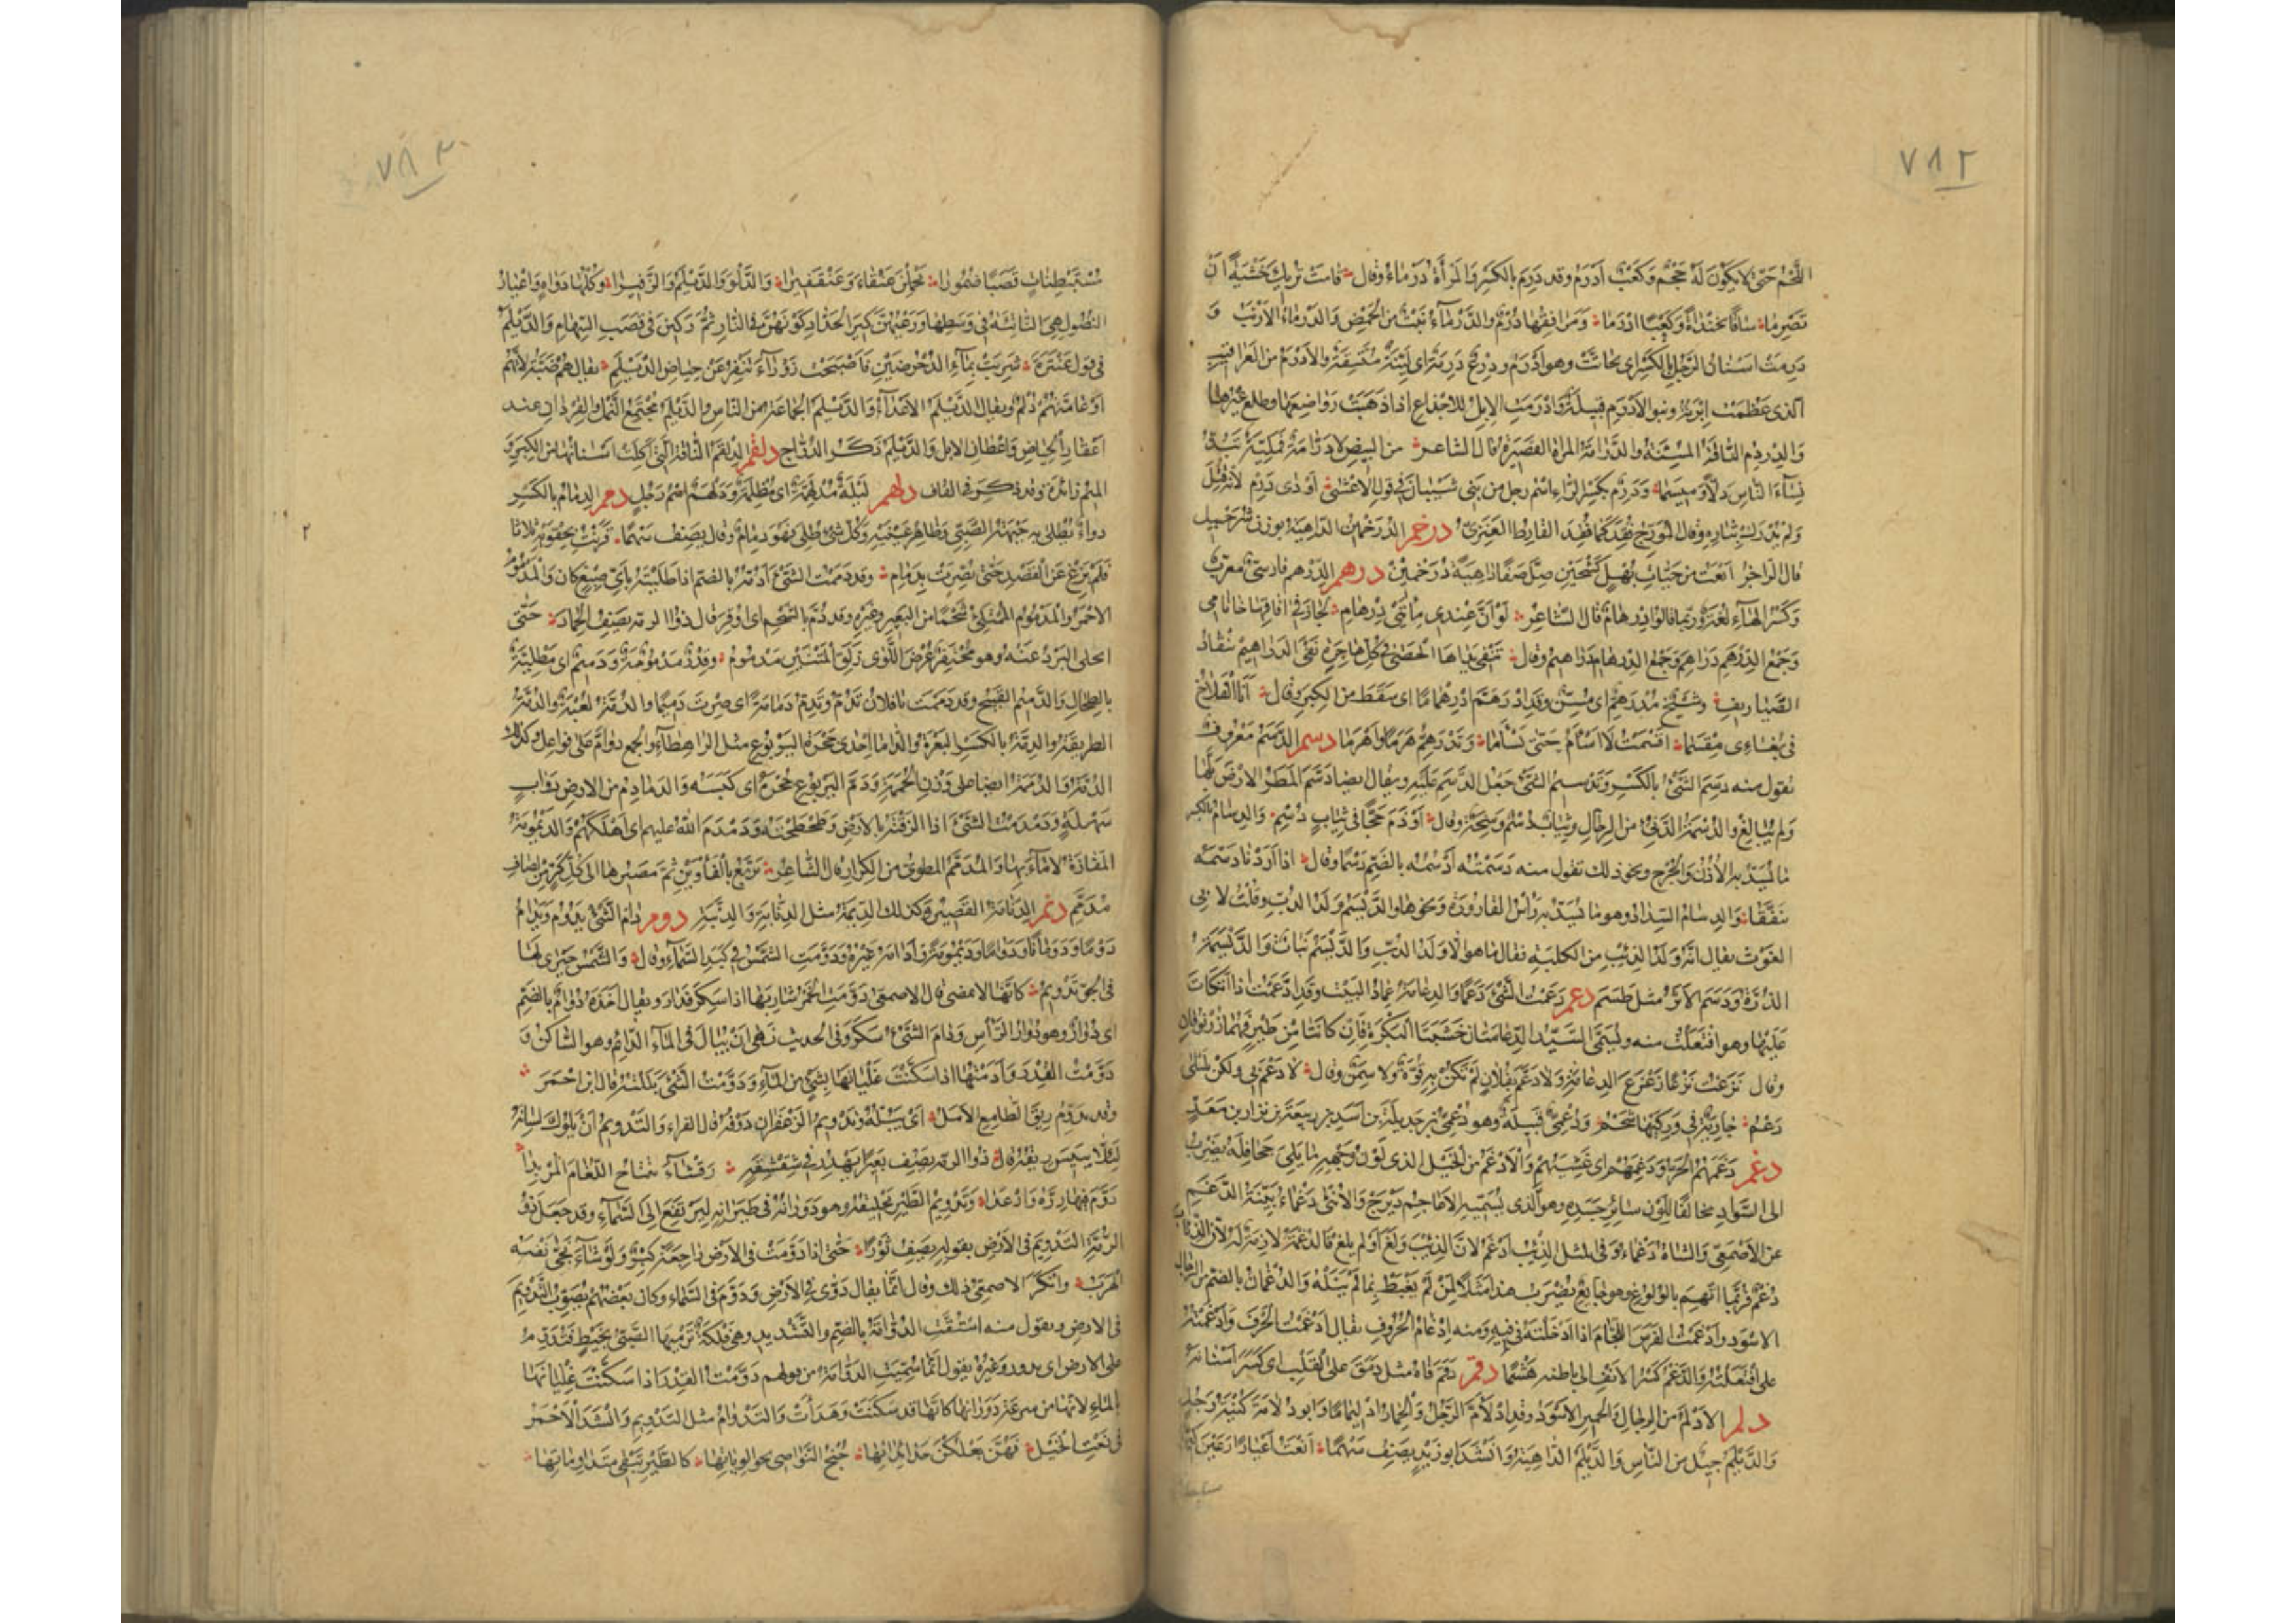 ٧٨٢
اللَّحْمُ حَتّى لا يَكُونَ لَهُ حَجْمٌ وَكَعْبٌ اَدْرَمُ وقد دَرِمَ بالكَسْرِ وَالمَرأَةُ دَرْمَاءُ وقال قامَتْ تُرِيكَ خَشْيَةً اَنْ
تَصْرِمَا سَاقًا بَخَنْدَاةً وَكَعْبًا اَدْرَمَا وَمَرافِقُهَا دُرْمٌ والدَّرْمَاءُ نَبْتٌ من الحَمْضِ وَالدَّرْمَاءُ الاَرْنَبُ وَ
دَرِمَتْ اَسْنَانُ الرَّجُلِ بِالكَسْرِ اى تَحَاتَّتْ وهو اَدْرَمُ ودِرْعٌ دَرِمَةٌ اى لَيِّنَةٌ مُتَّسِقَةٌ والاَدْرَمُ من العَرَاقِيبِ
الذى عَظُمَتْ اِبْرَتُهُ وبنو الاَدْرَمِ قبيلةٌ وَاَدْرَمَتِ الاِبِلُ للاِجْذاعِ اذا ذَهَبَتْ رَوَاضِعُهَا وطلع غيرُها
وَالدِّرْدِمُ النَّاقَةُ المُسِنَّةُ والدَّرَّامَةُ المرأة القصيرة قال الشاعر من البِيضِ لا دَرَّامَةٌ قَمَلِيَّةٌ تَبُذُّ
نِسَاءَ النَّاسِ دَلاًّ وَمِيسَمَا وَدَرِمٌ بكسر الراء اسْم رجل من بَنى شَيْبَانَ فى قولِ الاعْشى اَوْدَى دَرِمْ لاَنّهُ قُتِلَ
وَلم يُدْرَكْ بِثَارِهِ وقال المُؤَرِّجُ فُقِدَ كما فُقِدَ القارِظُ العَنَزِىُّ درخم الدُّرَخْمِينُ الدَّاهِيَةُ بوزن شُرَحْبِيل
قال الراجزُ اَنْعَتُ من حَيَّاتِ بُهْلٍ كُشْحَيْنِ صِلَّ صَفًا دَاهِيَةً دُرَخْمِينْ درهم الدِّرْهَم فارسىٌّ معرَّبٌ
وَكَسْرُ الهَاءِ لُغَةٌ وربّما قالوا دِرْهَامٌ قال الشاعِرُ لَوْ اَنَّ عِنْدى مِائَتَىْ دِرْهَامِ لَجَازَ فى آفَاقِهَا خَاتَامى
وَجَمْعُ الدِّرْهَمِ دَرَاهِمُ وَجَمْعُ الدِّرْهَامِ دَرَاهِيمُ وقال تَنْفِى يَدَاهَا الحَصَى فى كُلِّ هَاجِرَةٍ نَفْىَ الدَّرَاهِيمِ تَنْقَادُ
الصَّيَارِيفِ وشَيْخٌ مُدْرَهِمٌّ اى مُسِنٌّ وَقد ادْرَهَمَّ ادْرِهْمَامًا اى سَقَطَ من الكِبَرِ وقال اَنَا القُلاَخُ
فى بُغَاءِى مِقْسَمَا اَقْسَمْتُ لا اَسْأَمُ حَتّى يَسْأَمَا وَيَدْرَهِمَّ هَرَمًا وَاَهْرَمَا دسم الدَّسَمُ مَعْرُوفٌ
تقول منه دَسِمَ الشَّىْءُ بالكَسْرِ وَتَدْسِيمُ الشىْءِ جَعْلُ الدَّسَمِ عَلَيْهِ ويقال ايضا دَسَمَ المَطَرُ الاَرْضَ بَلَّهَا
وَلم يُبَالِغْ والدُّسْمَةُ الدَّنِىُّ من الرجال وثِيَابٌ دُسْمٌ وَسِخَةٌ وقال اَوْذَمَ حَجًّا فى ثِيَابٍ دُسْمِ وَالدِّسَامُ بالكسر
مَا يُسَدُّ به الاُذُنُ وَالجُرْحُ ونحو ذلك تقول منه دَسَمْتُه اَدْسُمُه بالضَّمِّ دَسْمًا وقال اذا اَرَدْنَا دَسْمَهُ
تَنَفَّقَا وَالدِّسَامُ السِّدَادُ وهو ما يُسَدُّ به رَأْسُ القَارُورَةِ وَنحوِها والدَّيْسَمُ وَلَدُ الدُّبِّ وقُلتُ لاَبِى
الغَوْثِ يقال اِنّهُ وَلَدُ الذِّئْبِ من الكَلْبَةِ فقال ما هو اِلا وَلَدُ الدُّبِّ وَالدَّيْسَمُ نَبَاتٌ وَالدَّيْسَمَةُ
الذُّرَةُ وَدَسَمَ الاَثَرُ مثل طَسَمَ دعم دَعَمْتُ الشَّىْءَ دَعْمًا وَالدِّعَامَةُ عِمَادُ البَيْتِ وقد ادَّعَمْتُ اذا اتَّكَأْتَ
عَلَيْهَا وهو افْتَعَلْتُ منه ويُسَمَّى السَّيِّدُ الدِّعَامَتَانِ خَشَبَتَا البَكْرَةِ فَاِنْ كانَتَا من طينٍ فَهُمَا زُرْنُوقَانِ
وقال نَزَعْتُ نَزْعًا زَعْزَعَ الدِّعَامَةْ وَلا دَعْمَ بفُلانٍ لم تَكُنْ به قُوَّةٌ ولا سِمَنٌ وقال لا دَعْمَ بى ولكن لِلَيْلَى
دَعْمُ جَارِيَةٌ فى وَرِكَيْهَا شَحْمُ وَدُعْمِىٌّ قَبِيلَةٌ وهو دُعْمِىُّ بن جَدِيلَةَ بن اَسَدِ بن رَبيعَةَ بن نِزارِ بن مَعَدٍّ
دغم دَغَمَهُمُ الحَرُّ وَدَغِمَهُمْ اى غَشِيَهُمْ وَالاَدْغَمُ من الخَيْلِ الذى لَوْنُ وَجْهِهِ وما يَلِى جَحَافِلَهُ يَضْرِبُ
الى السَّوَادِ مخالفًا لِلَوْنِ سَائِرِ جَسَدِهِ وهو الَّذى يُسَمِّيهِ الاعاجِمُ دَيْزَجْ وَالاُنْثَى دَغْمَاءُ بَيِّنَةُ الدَّغَمِ
عن الاَصْمَعىّ وَالشَاةُ دَغْمَاءُ وَفى المثل الذِّئبُ اَدْغَمُ لاَنّ الذِئْبَ وَلَغَ اَوْ لَم يَلِغْ فَالدُّغْمَةُ لازِمَةٌ لَه لاَنّ الذّئابَ
دُغْمٌ فرُبَّمَا اتُّهِمَ بالوُلُوغِ وهو جائِعٌ يُضْرَبُ هذا مَثَلاً لِمَنْ يُغْبَطُ بِمَا لَم يَنَلْهُ وَالدُّغْمَانُ بالضم من الرجال
الاَسْوَد واَدْغَمْتُ الفَرَسَ اللِّجَامَ اذا اَدْخَلْتَهُ فى فيهِ وَمنه اِدْغَامُ الحُرُوفِ يقال اَدْغَمْتُ الحَرْفَ وَادَّغَمْتُهُ
على افْتَعَلْتُهُ وَالدَّغْمُ كَسْرُ الاَنْفِ الى باطنه هَشْمًا دقم دَقَمَ فَاهُ مثل دَمَقَ على القَلْبِ اى كَسَرَ اَسْنَانَهُ
دلم الاَدْلَمُ من الرِجَالِ وَالحَمِيرِ الاَسْوَدُ وقد ادْلاَمَّ الرَّجُلُ وَالحِمَارُ ادْلِيمَامًا وَابو دُلامَةَ كُنْيَةُ رَجُلٍ
وَالدَّيْلَمُ جِيلٌ من النَّاسِ وَالدَّيْلَمُ الدَّاهِيَةُ وَاَنْشَدَ ابو زَيْدٍ يَصِفُ سَهْمًا اَنْعَتُ اَعْيَارًا رَعَيْنَ كِيرًا
٧٨٣
مُسْتَبْطِنَاتٍ قَصَبًا ضُمُورًا يَحْمِلْنَ عَنْقَاءَ وَعَنْقَفِيرَا وَالدَّلْوَ وَالدَّيْلَمَ وَالزَّفِيرَا وَكُلُّهَا دَوَاهٍ وَاَعْيَارُ
النُّصُولِ هِىَ النَّاتِئَةُ فى وَسَطِهَا وَرَعْيُهُنَّ كِيرَ الحَدَّادِ كَوْنُهُنَّ فى النَّارِ ثُمَّ رُكِّبْنَ فى قَصَبِ السِّهَامِ وَالدَّيْلَمُ
فى قول عَنْتَرَةَ شَرِبَتْ بِمَاءِ الدُّحْرُضَيْنِ فَاَصْبَحَتْ زَوْرَاءَ تَنْفِرُ عَنْ حِيَاضِ الدَّيْلَمِ يقال هُمْ ضَبَّةُ لاَنَّهُمْ
اَوْ عَامَّتَهُمْ دُلْمٌ ويقال الدَّيْلَمُ الاَعْدَاءُ وَالدَّيْلَمُ الجَمَاعَةُ من النَّاسِ والدَّيْلَمُ مُجْتَمَعُ النَّمْلِ والقِرْدَانِ عند
اَعْقَارِ الحِيَاضِ وَاَعْطَانِ الابِلِ وَالدَّيْلَمُ ذَكَرُ الدُّرَّاجِ دلقم الدِّلْقِمُ النَّاقَةُ الَّتى اُكِلَتْ اَسْنَانُهَا من الكِبَرِ وَ
الميم زائدة وقد ذكر فى القاف دلهم لَيْلَةٌ مُدْلَهِمَّةٌ اى مُظْلِمَةٌ وَدَلْهَمٌ اسْمُ رَجُلٍ دمم الدِّمَامُ بالكَسْرِ
دواءٌ تُطْلَى به جَبْهَةُ الصَّبِىِّ وظَاهِرُ عَيْنَيْهِ وَكُلُّ شَىْءٍ طُلِىَ بِهِ فَهُوَ دِمَامٌ وقال يَصِفُ سَهْمًا قَرَنْتُ بِحَقْوَيْهِ ثَلاثًا
فَلَمْ يَزِغْ عَنِ القَصْدِ حَتَّى بُصِّرَتْ بِدِمَامِ وقد دَمَمْتُ الشَّىْءَ اَدُمُّهُ بالضم اذا طَلَيْتَهُ بِاَىِّ صِبْغٍ كان وَالمَدْمُومُ
الاحْمَرُ والمَدْمُومُ المُمْتَلِئُ شَحْمًا من البَعِيرِ وغَيْرِهِ وقد دُمَّ بالشَّحْمِ اى اُوقِرَ قال ذو الرمّة يَصِفُ الحِمَارَ حَتَّى
انْجَلَى البَرْدُ عَنْهُ وَهو مُحْتَقِرٌ عَرْضَ اللِّوَى زَلِقُ المَتْنَيْنِ مَدْمُومُ وقِدْرٌ مَدْمُومَةٌ وَدَمِيمٌ اى مَطْلِيَّةٌ
بالطِّحَالِ وَالدَّمِيمُ القَبِيحُ وقد دَمَمْتَ يَا فُلانُ تَدُمُّ وَتَدِمُّ دَمَامَةً اى صِرْتَ دَمِيمًا والدُّمَّةُ لُعْبَةٌ والدُّمَّةُ
الطريقة والدِّمَّةُ بالكَسْرِ البَعْرَةُ والدَّامَّاءُ اِحْدَى جِحَرَةِ اليَرْبُوعِ مثل الرَاهِطَاءِ والجمع دَوَامُّ عَلَى فَوَاعِل وكذلك
الدُّمَّةُ وَالدُّمَمَةُ ايضا على وَزْنِ الحُمَمَةِ وَدَمَّ اليَرْبُوعُ جُحْرَهُ اى كَبَسَه وَالدَّمَادِمُ من الارضِ رَوَابٍ
سَهْلَةٌ وَدَمْدَمْتُ الشَّىْءَ اذا اَلْزَقْتَهُ بالاَرْضِ وَطَحْطَحْتَهُ وَدَمْدَمَ اللهُ عليهم اى اَهْلَكَهُمْ وَالدَّيْمُومَةُ
المَفَازَةُ لا مَاءَ بِهَا وَالمُدَمَّمُ المطوِىُّ من الكِرَارِ قال الشَّاعِرُ تَرَبَّعُ بالفَأْوَيْنِ ثُمَّ مَصِيرُهَا اِلى كُلِّ كَرٍّ مِنْ لِصَافِ
مُدَمَّمِ دنم الدِّنَّامَةُ القَصِيرُ وَكذلك الدِّنَّمَةُ مثل الدِنَّابَةِ وَالدِنَّبَةِ دوم دَامَ الشَّىْءُ يَدُومُ وَيَدَامُ
دَوْمًا وَدَوَامًا وَدَيْمُومَةً وَاَدَامَهُ غَيْرُهُ وَدَوَّمَتِ الشَّمْسُ فى كَبِدِ السَّمَاءِ وقال وَالشَّمْسُ حَيْرَى لَهَا
فى الجَوِّ تَدْوِيمُ كاَنّها لا تمضى قال الاصمعى دَوَّمَتِ الخَمْرُ شَارِبَهَا اذا سَكِرَ فدَارَ ويقال اَخَذَهُ دُوَامٌ بالضَّمِّ
اى دُوَارٌ وهو دُوَارُ الرَّأْسِ وَدَامَ الشَّىْءُ سَكَنَ وَفى الحديث نَهَى اَنْ يُبَالَ فى المَاءِ الدَّائِمِ وهو السَّاكِنُ وَ
دَوَّمْتُ القِدْرَ وَاَدَمْتُهَا اذا سَكَّنْتَ غَلَيَانَهَا بِشَىْءٍ من المَاءِ وَدَوَّمْتُ الشَّىْءَ بَلَلْتُهُ قال ابن اَحْمَرَ
وقد يُدَوِّمُ رِيقَ الطَّامِعِ الاَمَلُ اَى يَبُلُّهُ وتَدْوِيمُ الزَّعْفَرَانِ دَوْفُهُ قال الفراء وَالتَّدْوِيمُ اَنْ يَلُوكَ لِسَانَهُ
لِئَلاَّ يَيْبَسَ رِيقُهُ قال ذو الرمّة يَصِفُ بَعِيرًا يَهْدِرُ فى شِقْشِقَتِهِ رَقْشَاءَ تَمْتَاحُ اللُّغَامَ المُزْبِدَا
دَوَّمَ فيهَا رِزُّهُ وَاَرْعَدَا وَتَدْوِيمُ الطَّيْرِ تَحْلِيقُهُ وهو دَوَرَانُهُ فى طَيَرَانِهِ لِيَرْتَفِعَ اِلَى السَّمَاءِ وقد جَعَلَ ذو
الرُّمَّةِ التَّدْوِيمَ فى الاَرْضِ بقوله يَصِفُ ثَوْرًا حَتّى اذا دَوَّمَتْ فى الاَرْضِ رَاجَعَهُ كِبْرٌ وَلَوْ شَاءَ نَجَّى نَفْسَهُ
الهَرَبُ وانْكَرَ الاصمعى ذلك وقال انّما يقال دَوَّى فى الاَرْضِ وَدَوَّمَ فى السَّمَاءِ وكان بَعْضُهُمْ يُصَوِّبُ التَّدْوِيمَ
فى الارض ويقول منه اشْتُقَّتِ الدُّوَّامَةُ بالضمّ والتَّشْدِيدِ وهى فَلْكَةٌ تَرْمِيهَا الصَّبِىُّ بِخَيْطٍ فَتُدَوِّمُ
على الارض اى تدور وغَيْرُهُ يقول اِنّما سُمِّيَتِ الدُّوَّامَةُ من قولهم دَوَّمْتُ القِدْرَ اذا سَكَّنْتَ غَلَيَانَهَا
بالمَاءِ لاَنّها من سُرْعَةِ دَوَرَانِهَا كاَنّها قد سَكَنَتْ وَهَدَأَتْ وَالتَدْوَامُ مثل التَدْوِيمِ وَاَنْشَدَ الاَحْمَرُ
فى نَعْتِ الخَيْلِ فَهُنَّ يَعْلُكْنَ حَدَائِدَاتِهَا جُنْحَ النَّوَاصِى نحو اَلْوِيَاتِهَا كَالطَّيْرِ تَبْقِى مُتَدَاوِمَاتِهَا